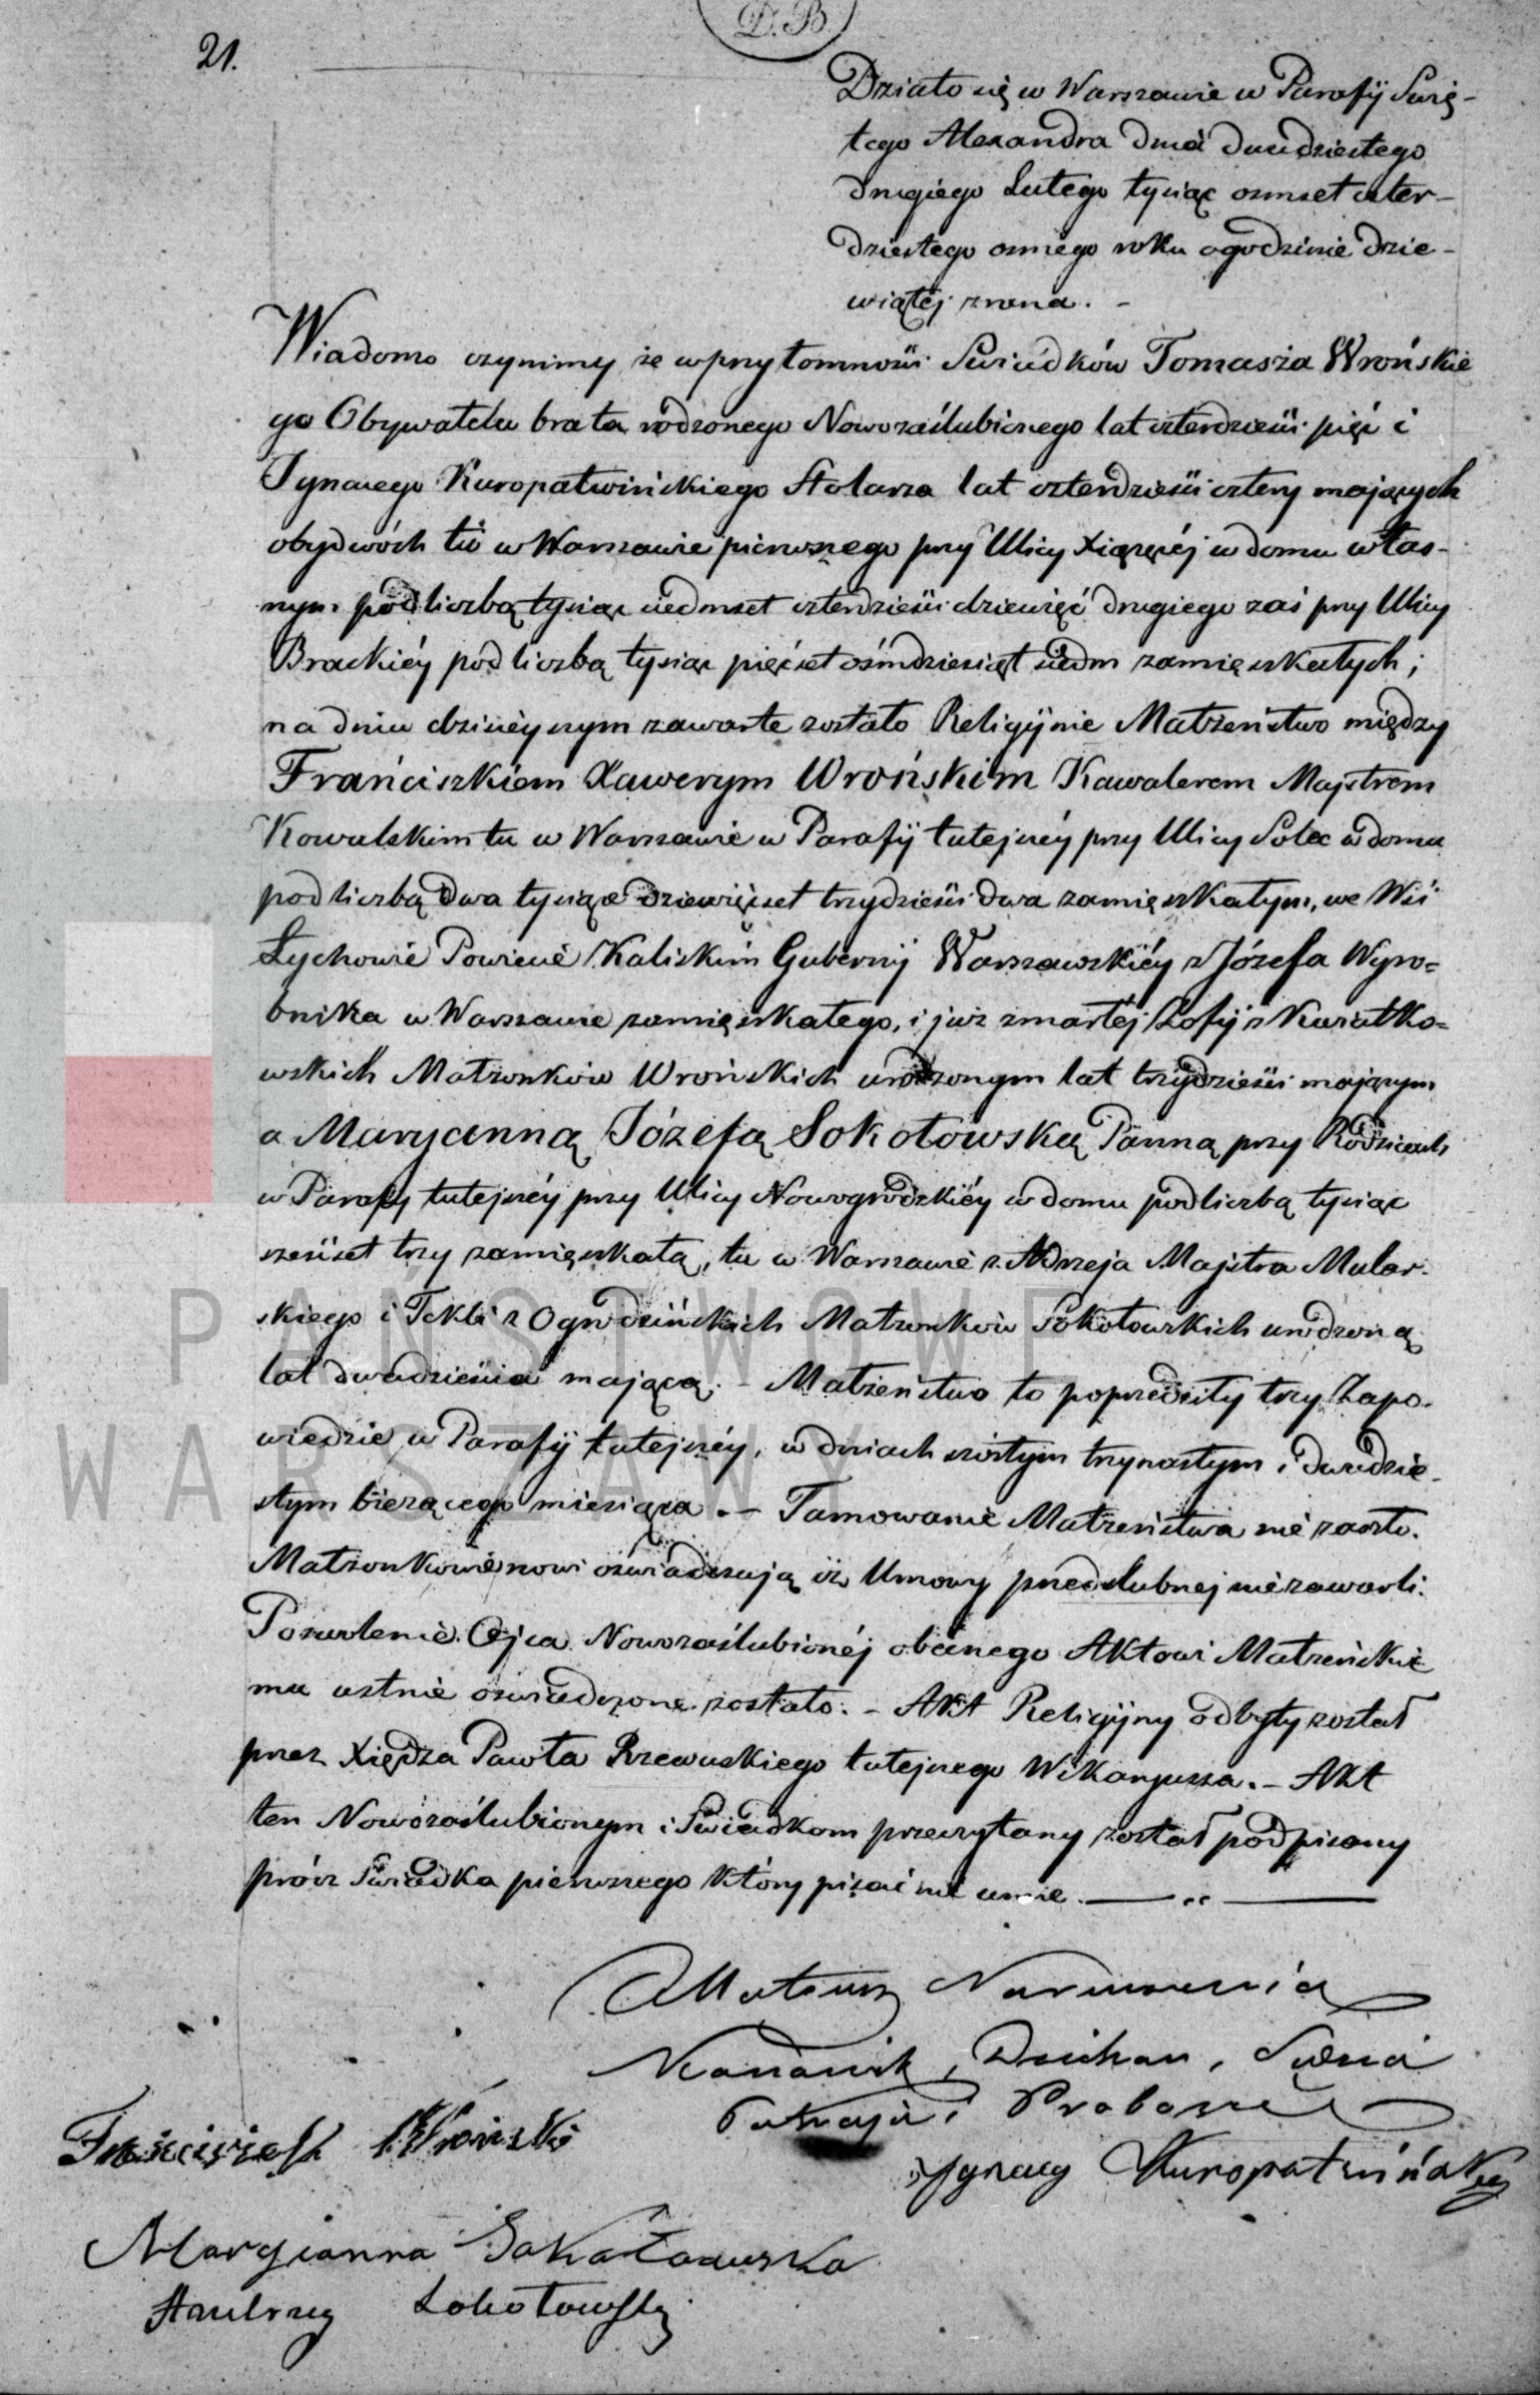 21.
D.B.
Działo się w Warszawie w Parafij Świę-
tego Alexandra dnia dwudziestego
drugiego Lutego tysiąc osmset czter-
dziestego osmego roku o godzinie dzie-
wiątej zrana. -
Wiadomo czynimy że w przytomności Swiadków Tomasza Wrońskie
go Obywatela brata rodzonego Nowozaślubionego lat czterdzieści pięć i
Ignacego Kuropatwińskiego Stolarza lat czterdzieści cztery mających
obydwóch tu w Warszawie pierwszego przy Ulicy Xiążęcéj w domu włas-
nym pod liczbą tysiąc siedmset czterdzieści dziewięć drugiego zaś przy Ulicy
Brackiéy pod liczbą tysiąc pięćset ośmdziesiąt siedm zamięszkałych;
na dniu dzisiéyszym zawarte zostało Religijnie Małżeństwo między
Frańciszkiem Xawerym Wrońskim Kawalerem Majstrem
Kowalskim tu w Warszawie w Parafij tutejszéy przy Ulicy Solec w domu
pod liczbą dwa tysiące dziewięćset trzydzieści dwa zamięszkałym, we Wsi
Łychowie Powiecie Kaliskim Gubernij Warszawskiéy z Józefa Wyro=
bnika w Warszawie zamięszkałego, i już zmarłej Zofij z Kwiatko=
wskich Małżonków Wrońskich urodzonym lat trzydzieści mającym
a Maryanną Józefą Sokołowską Panną przy Rodzicach
w Parafij tutejszéy przy Ulicy Nowogrodzkiéy w domu pod liczbą tysiąc
sześćset trzy zamięszkałą, tu w Warszawie z Andrzeja Majstra Mular-
skiego i Tekli z Ogrodzińskich Małżonków Sokołowskich urodzoną
lat dwadzieścia mającą. - Małżeństwo to poprzedziły trzy Zapo-
wiedzie w Parafij tutejszéy, w dniach szóstym trzynastym i dwudzie-
stym bieżącego miesiąca. - Tamowanie Małżeństwa nie zaszło.
Małżonkowie nowi oświadczają iż Umowy przedślubnej nie zawarli.
Pozwolenie Ojca Nowozaślubionéj obecnego Aktowi Małżeńskie
mu ustnie oświadczone zostało. - Akt Religijny odbyty został
przez Xiędza Pawła Rzewuskiego tutejszego Wikaryusza. - Akt
ten Nowozaślubionym i Swiadkom przeczytany został podpisany
prócz Swiadka pierwszego który pisać nie umie.
Mateusz
Kanonik, Dziekan, Sędzia
Proboszcz
Frańciszek Wroński
Ignacy Kuropatwiński
Maryianna Sokołowska
Andrzey Sokołowski
PAŃSTWOWE
WARSZAWY